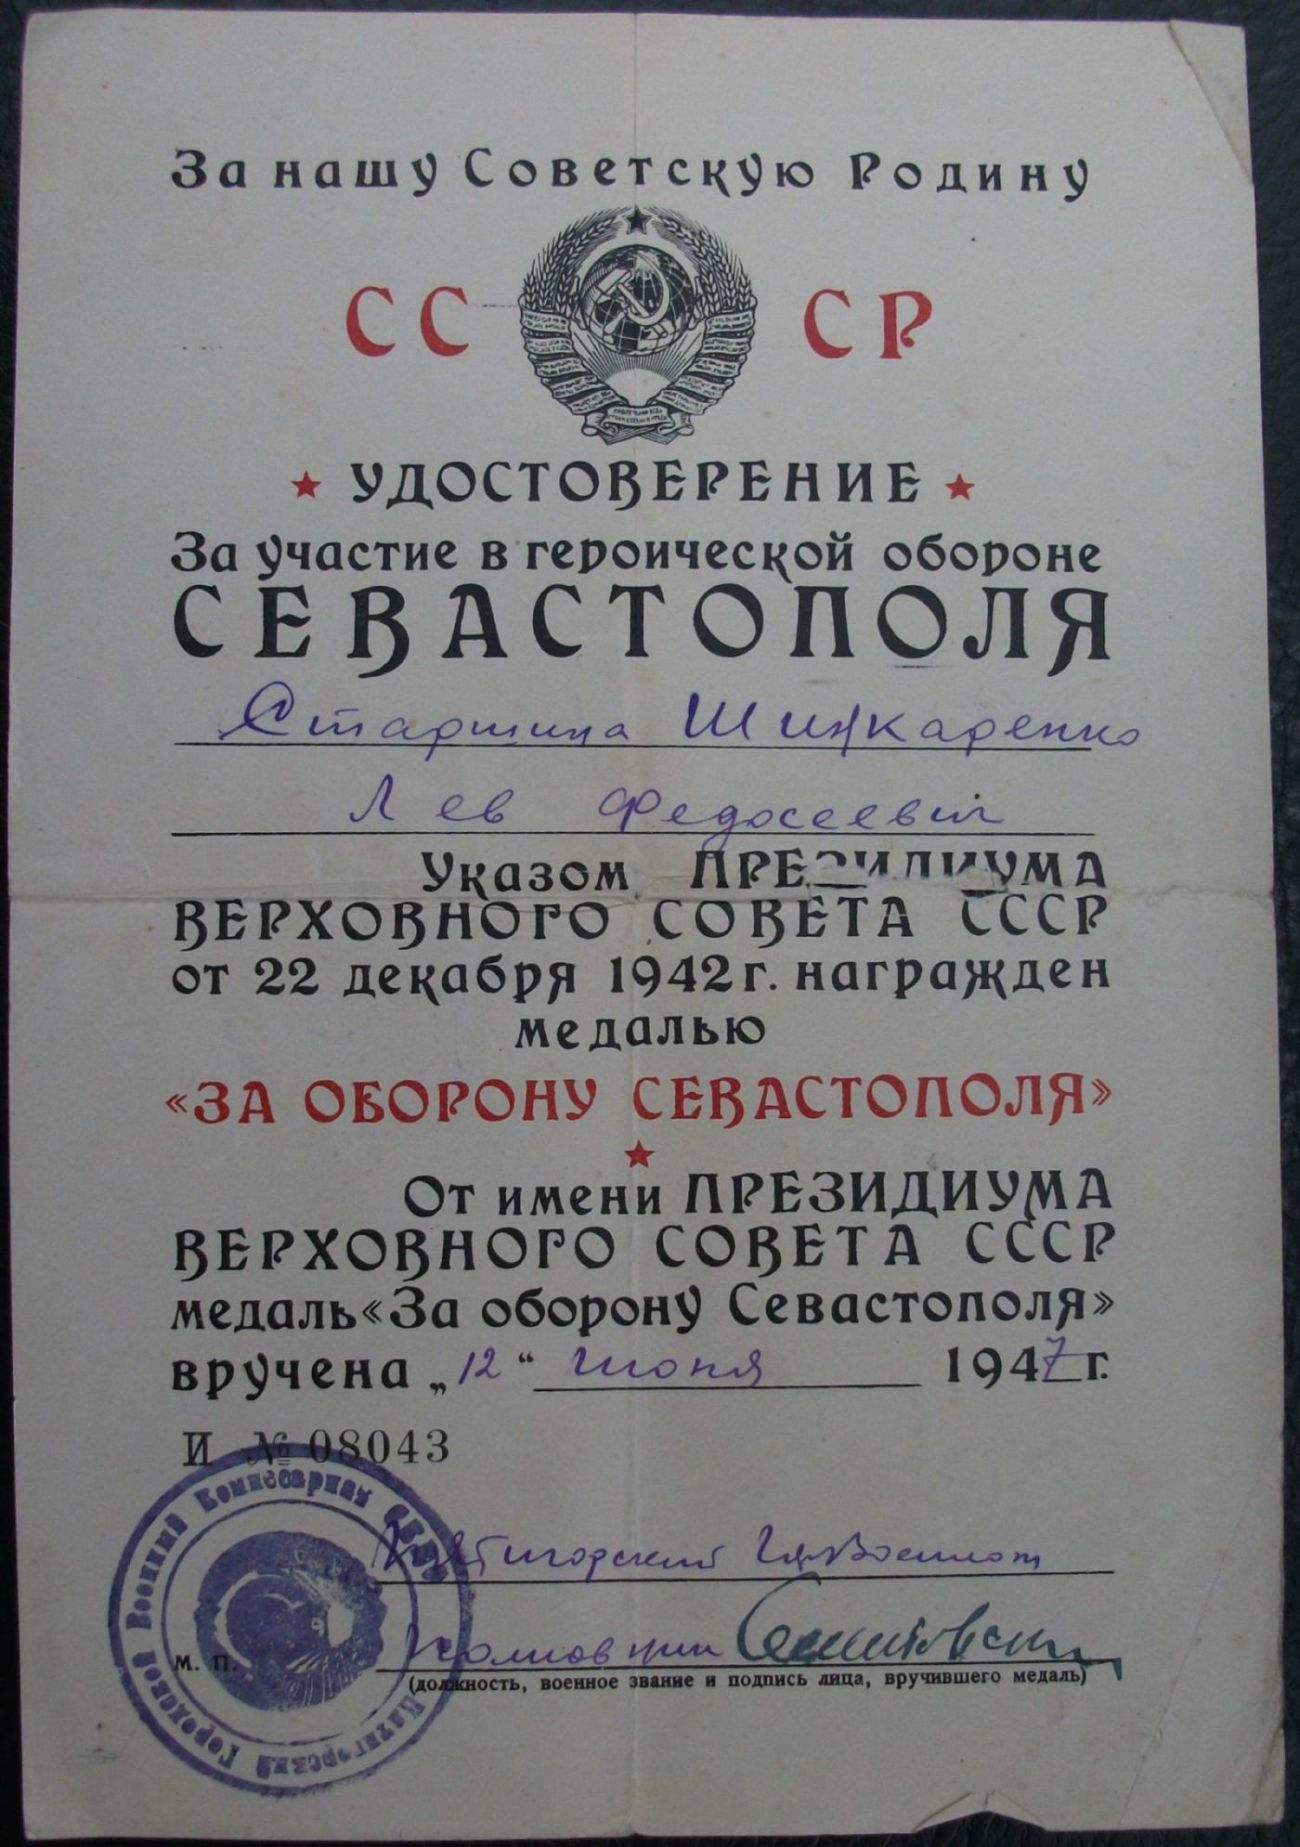 За нашу Советскую Родину
СС СР
УДОСТОВЕРЕНИЕ
За участие в героической обороне
СЕВАСТОПОЛЯ
Старшина Шинкаренко
Лев Федосеевич
Указом ПРЕЗИДИУМА
ВЕРХОВНОГО СОВЕТА СССР
от 22 декабря 1942 г. награжден
медалью
«ЗА ОБОРОНУ СЕВАСТОПОЛЯ»
От имени ПРЕЗИДИУМА
ВЕРХОВНОГО СОВЕТА СССР
медаль «За оборону Севастополя»
вручена „12“ июня 1947 г.
И № 08043
Пятигорский Горвоенком
Полковник
М. П.
(должность, военное звание и подпись лица, вручившего медаль)
Пятигорский Городской Военный Комиссариат